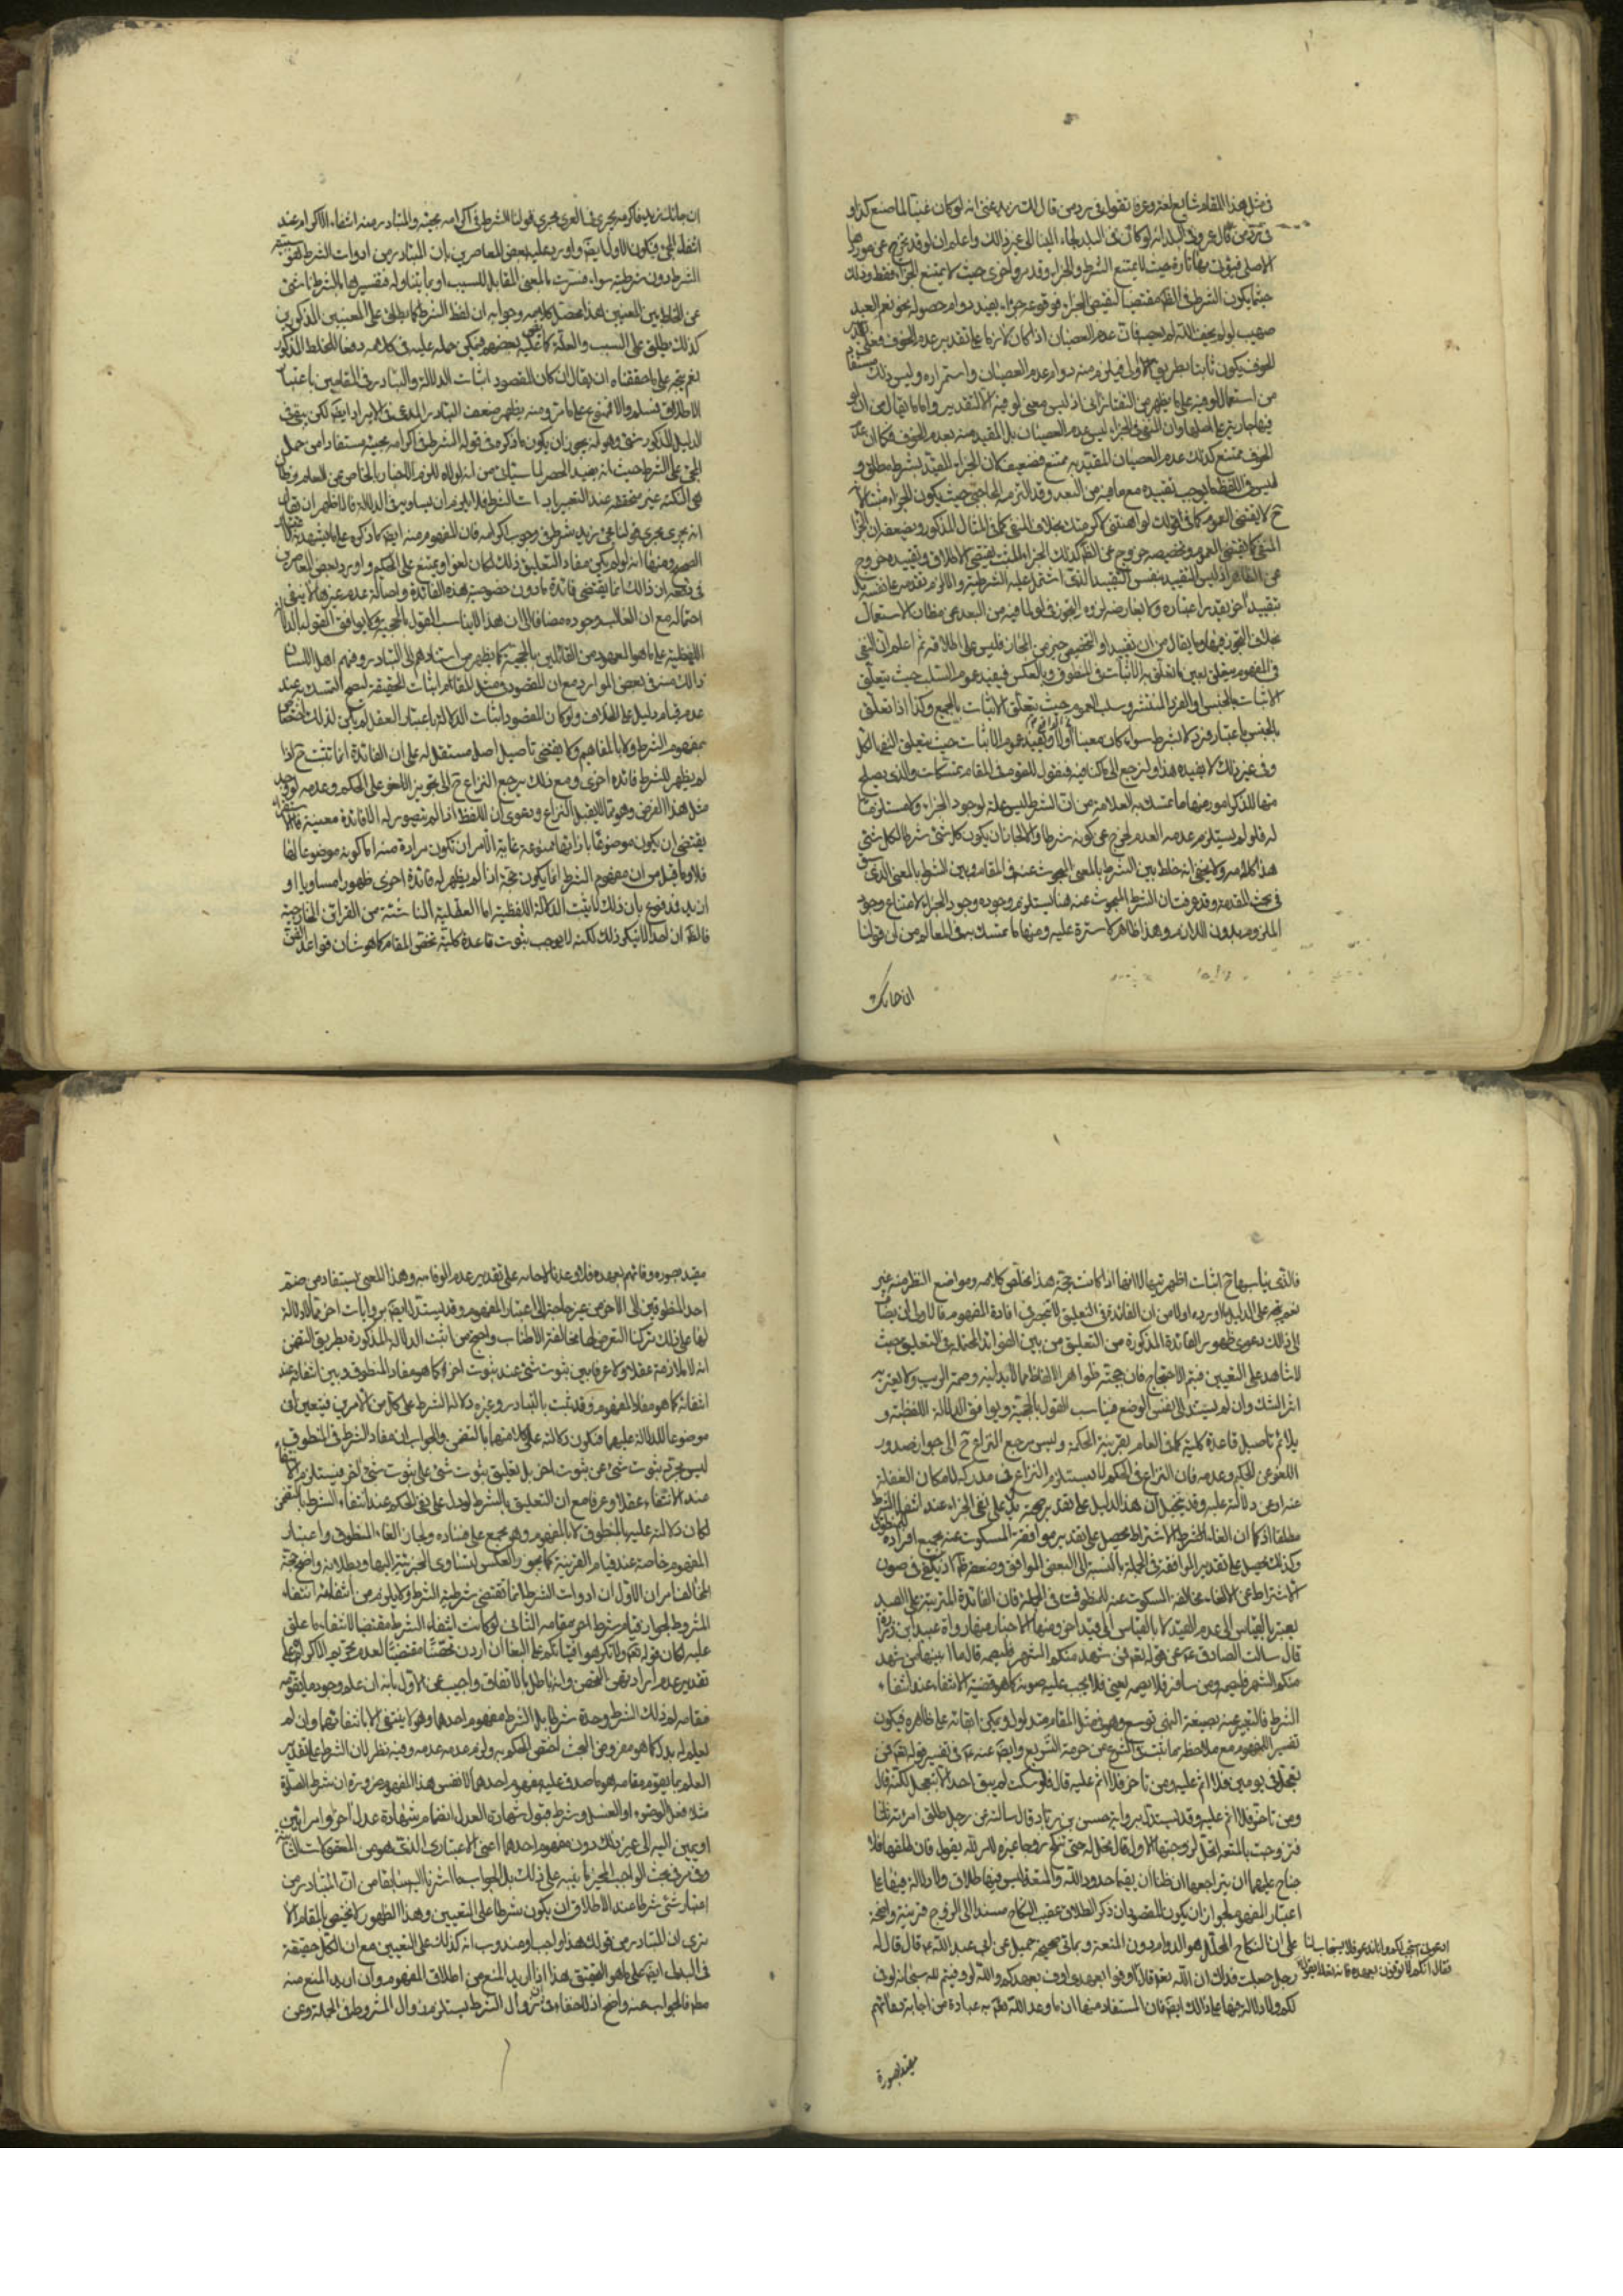 في مثل هذا المقام شايع لغة وعرفا تقول في رد من قال لك زيد غني انه لو كان غنيا لما صنع كذا و
في رد من قال عمرو في البلد انه لو كان في البلد لجاء الينا الى غير ذلك واعلم ان لو قد تخرج عن موردها
الاصلي فيؤتى بها تارة حيث لا يمتنع الشرط والجزاء وقد مر واخرى حيث لا يمتنع الجزاء فقط وذلك
حيثما يكون الشرط في الظ مقتضيا لنقيض الجزاء فوقوعه جزاء يفيد دوام حصوله نحو نعم العبد
صهيب لو لم يخف الله لم يعصه فان عدم العصيان اذا كان لازما على تقدير عدم الخوف فعلى تقدير
الخوف يكون ثابتا بطريق اولى فيلزم منه دوام عدم العصيان واستمراره وليس ذلك
من استعمال لو فيه على ما يظهر من التفتازاني اذ ليس معنى لو فيه الا التقدير واما ما يقال من ان لو
فيها جارية على اصلها وان المنفي في الجزاء ليس عدم العصيان بل المقيد منه بعدم الخوف فكما ان عدم
الخوف ممتنع كذلك عدم العصيان المقيد به ممتنع فضعيف لان الجزاء المقيد بشرطه مطلق و
ليس في اللفظ ما يوجب تقييده مع ما فيه من البعد وقد التزمه الحاجبي حيث يكون الجزاء مثبتا لانه
ح لا يقتضي العموم كما في قولك لو اهنتني لاكرمتك بخلاف المنفي كما في المثال المذكور ويضعفه ان الجزاء
المنفي كما يقتضي العموم وتخصيصه خروج عن الظ كذلك الجزاء المثبت يقتضي الاطلاق وتقييده خروج
عن الظاهر اذ ليس التقييد بنفس التقييد الذي اشتمل عليه الشرطية والا لزم تقدمه على نفسه بل
بتقييد اخر يقدر اعتباره ولا يعارضه لزوم التجوز في لو لما فيه من البعد عن مظان الاستعمال
بخلاف التجوز فيها وما يقال من ان تقييد او التخصيص خير من المجاز فليس على اطلاقه ثم اعلم ان النفي
في المفهوم يتعلق بعين ما تعلق به الاثبات في المنطوق وبالعكس فيفيد عموم السلب حيث يتعلق
الاثبات بالجنس او الفرد المنتشر وسلب العموم حيث يتعلق الاثبات بالجميع وكذا اذا تعلق
بالجنس باعتبار فرد لا بشرط سواء كان معينا او لا ويفيد عموم الاثبات حيث تعلق النفي بالكل
وفي غير ذلك لا يفيده هذا ولنرجع الى ما كنا فيه فنقول للقوم في المقام تمسكات والذي يصلح
منها للذكر امور منها ما تمسك به العلامة من ان الشرط ليس علة لوجود الجزاء ولا مستلزما
له فلو لم يستلزم عدمه العدم لخرج عن كونه شرطا ولجاز ان يكون كل شيء شرطا لكل شيء
هذا كلامه ولا يخفى انه خلط بين الشرط بالمعنى المبحوث عنه في المقام وبين الشرط بالمعنى الذي سبق
في بحث المقدمة وقد عرفت ان الشرط المبحوث عنه هنا يستلزم وجوده وجود الجزاء لامتناع وجود
الملزوم بدون اللازم وهذا ظاهر لا سترة عليه ومنها ما تمسك به في المعالم من ان قولنا
ان جائك
ان جائك زيد فاكرمه يجري في العرف مجرى قولنا الشرط في اكرامه مجيئه والمتبادر منه انتفاء الاكرام عند
انتفاء المجيء فيكون الاول ايضا واورد عليه بعض المعاصرين بان المتبادر من ادوات الشرط هو سببية
الشرط دون شرطيته سواء فسرت بالمعنى المقابل للسبب او بما يتناوله فتفسيرها بالشرط ناش
عن الخلط بين المعنيين هذا محصل كلامه وجوابه ان لفظ الشرط كما يطلق على المعنيين المذكورين
كذلك يطلق على السبب والعلة كما حكي بعضهم فيمكن حمله عليه في كلامه دفعا للخلط المذكور
نعم يتجه على ما حققناه ان يقال ان كان المقصود اثبات الدلالة والتبادر في المقامين باعتبار
الاطلاق فمسلم والا فممنوع على ما مر ومنه يظهر ضعف التبادر المدعى في الايراد ايضا لكن يبقى في
الدليل المذكور شيء وهو انه يجوز ان يكون ما ذكره في قوله الشرط في اكرامه مجيئه مستفادا من حمل
المجيء على الشرط حيث انه يفيد الحصر لما سيأتي من انه لولاه للزم الاخبار بالخاص عن العام وظ ان
هذه النكتة غير متحققة عند التعبير بادات الشرط فلا يلزم ان يساويه في الدلالة فالاظهر ان يقال
انه يجري مجرى قولنا مجيء زيد شرط في وجوب اكرامه فان المفهوم منه ايضا ما ذكره على ما يشهد به
الصحيح ومنها انه لو لم يكن مفاد التعليق ذلك لكان لغوا ويمتنع على الحكيم واورد بعض المعاصرين
في دفعه ان ذلك انما يقتضي فائدة ما دون خصوصية هذه الفائدة واصالة عدم غيرها لا ينفي
احتماله مع ان الغالب وجوده مضافا الى ان هذا لا يناسب القول بالحجية ولا يوافق القول بالدلالة
اللفظية على ما هو المعهود من القائلين بالحجية كما يظهر من استنادهم الى التبادر وفهم اهل اللسان
ذلك منه في بعض الموارد مع ان المقصود في مثل المقام اثبات الحقيقة ليصح التمسك به عند
عدم قيام دليل على الخلاف ولو كان المقصود اثبات الدلالة باعتبار العقل لم يكن لذلك اختصاص
بمفهوم الشرط ولا بالمفاهيم ولا يقتضي تاصيل اصل مستقل له على ان الفائدة انما تثبت ح اذا
لم يظهر للشرط فائدة اخرى ومع ذلك يرجع النزاع ح الى تجويز اللغو على الحكيم وعدمه لو وجد
مثل هذا الفرض وهو مما لا يقبل النزاع ودعوى ان اللفظ اذا لم يتصور له الا فائدة معينة فالاستقراء
يقتضي ان يكون موضوعا بازائها ممنوعة غاية الامر ان تكون مرادة منه اما كونه موضوعا لها
فلا وما قيل من ان مفهوم الشرط انما يكون حجة اذا لم يظهر له فائدة اخرى ظهورا مساويا او
ازيد فدفوع بان ذلك لا يثبت الدلالة اللفظية اما العقلية الناشئة من القرائن الخارجية
فالظ ان احدا لا ينكر ذلك لكنه لا يوجب ثبوت قاعدة كلية تخص المقام كما هو شان قواعد الفن
فالذي يناسبها ح اثبات اظهريتها لا انها اذا كانت حجة هذا ملخص كلامه ومواضع النظر منه غير
نعم يتجه على الدليل ما اورده اولا من ان الفائدة في التعليق لا تنحصر في افادة المفهوم فالاولى ان يضاف
الى ذلك دعوى ظهور الفائدة المذكورة من التعليق من بين الفوائد المحتملة في التعليق حيث
لا شاهد على التعيين فيتم الاحتجاج فان حجية ظواهر الالفاظ مما لا يدانيه وصمة الريب ولا يعتريه
اثر الشك وان لم يستند الى نفس الوضع فيناسب القول بالحجية ويوافق الدلالة اللفظية و
يلائم تاصيل قاعدة كلية كما في العام بقرينة الحكمة وليس مرجع النزاع ح الى جواز صدور
اللغو عن الحكيم وعدمه فان النزاع في الحكم لا يستلزم النزاع في مدركه لامكان الغفلة
عنه او عن دلالته عليه وقد يتخيل ان هذا الدليل على تقدير صحته يدل على نفي الجزاء عند انتفاء الشرط
مطلقا اذ كما ان الغاء الشرط والاشتراط يحصل على تقدير موافقة المسكوت عنه بجميع افراده للمنطوق
وكذلك يحصل على تقدير الموافقة في الجملة بالنسبة الى البعض الموافق وضعفه ظ اذ يكفي في صون
الاشتراط عن الالغاء مخالفة المسكوت عنه للمنطوق في الجملة فان الفائدة المترتبة على القيد
يعتبر بالقياس الى عدم القيد لا بالقياس الى قيد اخر ومنها الاخبار منها رواية عبيد ابن زرارة
قال سالت الصادق عن قوله تعالى فمن شهد منكم الشهر فليصمه قال ما ابينها من شهد
منكم الشهر فليصمه ومن سافر فلا يصمه يعني فلا يجب عليه صومه كما هو قضية الانتفاء عند انتفاء
الشرط فالتعبير عنه بصيغة النهي توسع وهو في مثل المقام متداول ويمكن ابقائه على ظاهره فيكون
تفسير المفهوم مع ملاحظة ما ثبت في الشرع من حرمة التشريع وايضا عنه ع في تفسير قوله تعالى فمن
تعجل في يومين فلا اثم عليه ومن تاخر فلا اثم عليه قال فلو سكت لم يبق احد الا تعجل لكنه قال
ومن تاخر فلا اثم عليه وقد يستدل برواية حسن بن زياد قال سالته عن رجل طلق امرئته ثلثا
فتزوجت بالمتعة اتحل لزوجها الاول قال لا تحل له حتى تنكح زوجا غيره ان الله يقول فان طلقها فلا
جناح عليهما ان يتراجعا ان ظنا ان يقيما حدود الله والمتعة ليس فيها طلاق ولا دلالة فيها على
اعتبار المفهوم لجواز ان يكون المقصود ان ذكر الطلاق عقيب النكاح مسندا الى الزوج قرينة واضحة
على ان النكاح المحلل هو الدوام دون المتعة وبما في صحيحة جميل عن ابي عبد الله ع قال قال له
رجل جعلت فداك ان الله يقول اوفوا بعهدي اوف بعهدكم والله لو وفيتم لله سبحانه لوفى
لكم ولا دلالة فيها على ذلك ايضا فان المستفاد منها ان ما وعد الله تعالى به عباده من اجابة دعائهم
ادعوني استجب لكم وانا ندعو فلا يستجاب لنا
فقال انكم لا توفون بعهده فانه تعالى يقول
مقيد بصورة
مقيد بصورة وفائهم بعهده فلا وعد بالاجابة على تقدير عدم الوفاء به وهذا المعنى يستفاد من ضم
احد المنطوقين الى الاخر من غير حاجة الى اعتبار المفهوم وقد يستدل ايضا بروايات اخر مما لا دلالة
لها على ذلك تركنا التعرض لها مخافة الاطناب واحتج من اثبت الدلالة المذكورة بطريق التضمن
انه لا ملازمة عقلا ولا عرفا بين ثبوت شيء عند ثبوت اخر كما هو مفاد المنطوق وبين انتفائه عند
انتفائه كما هو مفاد المفهوم وقد ثبت بالتبادر وغيره دلالة الشرط على كل من الامرين فيتعين ان
موضوعا للدلالة عليهما فتكون دلالته على كل منهما بالتضمن والجواب ان مفاد الشرط في المنطوق
ليس مجرد ثبوت شيء عن ثبوت اخر بل تعليق ثبوت شيء على ثبوت شيء اخر فيستلزم الانتفاء
عند الانتفاء عقلا وعرفا مع ان التعليق بالشرط لو دل على نفي الحكم عند انتفاء الشرط بالتضمن
لكان دلالته عليه بالمنطوق لا بالمفهوم وهو مجمع على فساده ولجاز الغاء المنطوق واعتبار
المفهوم خاصة عند قيام القرينة كما يجوز العكس لتساوي الجزئين اليها وبطلانه واضح حجة
المخالف امران الاول ان ادوات الشرط انما تقتضي شرطية الشرط ولا يلزم من انتفائه انتفاء
المشروط لجواز قيام شرط اخر مقامه الثاني لو كانت انتفاء الشرط مقتضيا لانتفاء ما علق
عليه لكان قوله تعالى ولا تكرهوا فتياتكم على البغاء ان اردن تحصنا مقتضيا لعدم تحريم الاكراه على
تقدير عدم ارادتهن التحصن وانه باطل بالاتفاق واجيب عن الاول بانه ان علم وجود ما يقوم
مقامه لم يكن ذلك الشرط وحده شرطا بل الشرط مفهوم احدهما وهو لا ينتفي الا بانتفائهما وان لم
يعلم له بدل كما هو مفروض البحث اختص الحكم به ولزم من عدمه عدمه وفيه نظر لان الشرط على تقدير
العلم بما يقوم مقامه هو ما صدق عليه مفهوم احدهما لا نفس هذا المفهوم ضرورة ان شرط الصلوة
مثلا فعل الوضوء او الغسل وشرط قبول شهادة العدل انضمام شهادة عدل اخر او امرئتين
او يمين اليه الى غير ذلك دون مفهوم احدهما اعني الاعتباري الذي هو من المعقولات الثانية
وقد مر في بحث الواجب المخير ما ينبه على ذلك بل الجواب ما اشرنا اليه سابقا من ان المتبادر من
اعتبار شيء شرطا عند الاطلاق ان يكون شرطا على التعيين وهذا الظهور لا يختص بالمقام الا
ترى ان المتبادر من قولك هذا واجب او مندوب انه كذلك على التعيين مع ان الكل حقيقة
في البدلي ايضا على ما هو التحقيق هذا اذا اريد المنع من اطلاق المفهوم وان اريد المنع منه
مطلقا فالجواب عنه واضح اذ لا خفاء في ان زوال الشرط يستلزم زوال المشروط في الجملة وعن